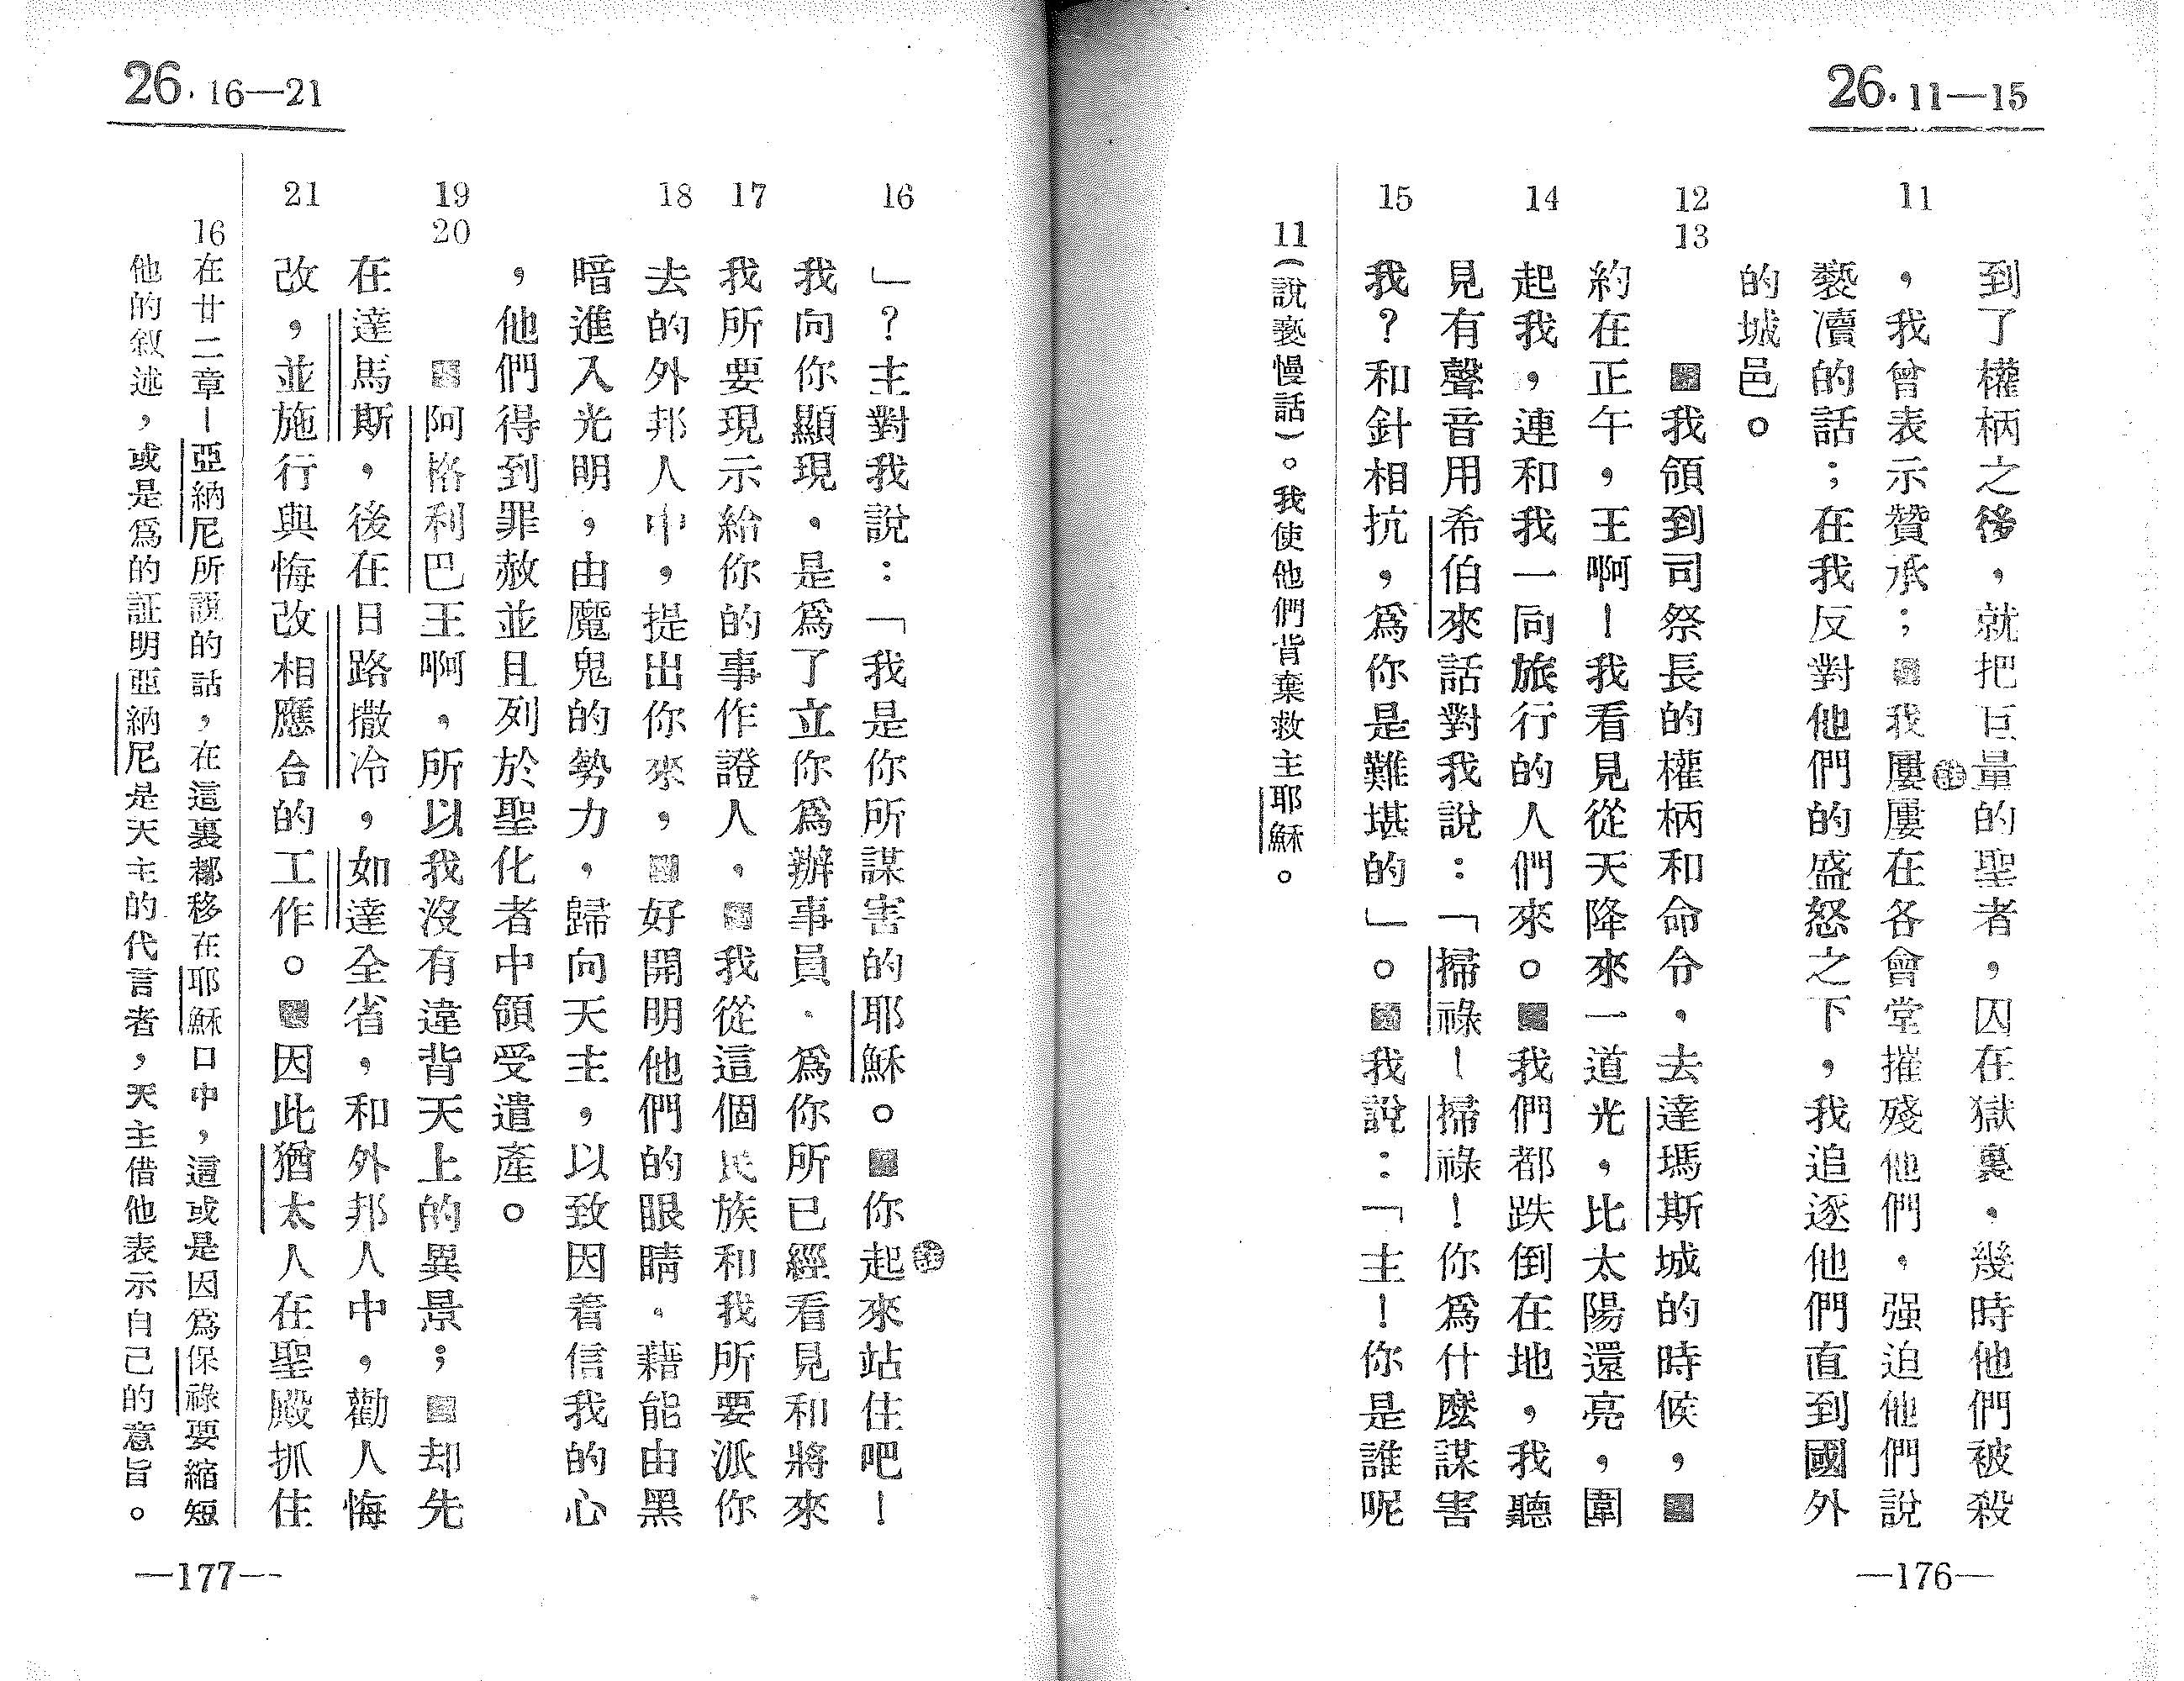 26. 11—15
11
12
13
14
15
到了權柄之後，就把巨量的聖者，囚在獄裏，幾時他們被殺
，我曾表示贊承；■我屢屢在各會堂摧殘他們，强迫他們說
褻瀆的話；在我反對他們的盛怒之下，我追逐他們直到國外
的城邑。
■我領到司祭長的權柄和命令，去達瑪斯城的時候，■
約在正午，王啊！我看見從天降來一道光，比太陽還亮，圍
起我，連和我一同旅行的人們來。■我們都跌倒在地，我聽
見有聲音用希伯來話對我說：「掃祿！掃祿！你爲什麼謀害
我？和針相抗，爲你是難堪的」。■我說：「主！你是誰呢
11（說褻慢話）。我使他們背棄救主耶穌。
—176—
26. 16—21
16
17
18
19
20
21
」？主對我說：「我是你所謀害的耶穌。■你起來站住吧！
我向你顯現，是爲了立你爲辦事員，爲你所已經看見和將來
我所要現示給你的事作證人，■我從這個民族和我所要派你
去的外邦人中，提出你來，■好開明他們的眼睛，藉能由黑
暗進入光明，由魔鬼的勢力，歸向天主，以致因着信我的心
，他們得到罪赦並且列於聖化者中領受遺產。
■阿格利巴王啊，所以我沒有違背天上的異景；■却先
在達馬斯，後在日路撒冷，如達全省，和外邦人中，勸人悔
改，並施行與悔改相應合的工作。■因此猶太人在聖殿抓住
16在廿二章—亞納尼所說的話，在這裏都移在耶穌口中，這或是因爲保祿要縮短
他的叙述，或是爲的証明亞納尼是天主的代言者，天主借他表示自己的意旨。
—177—